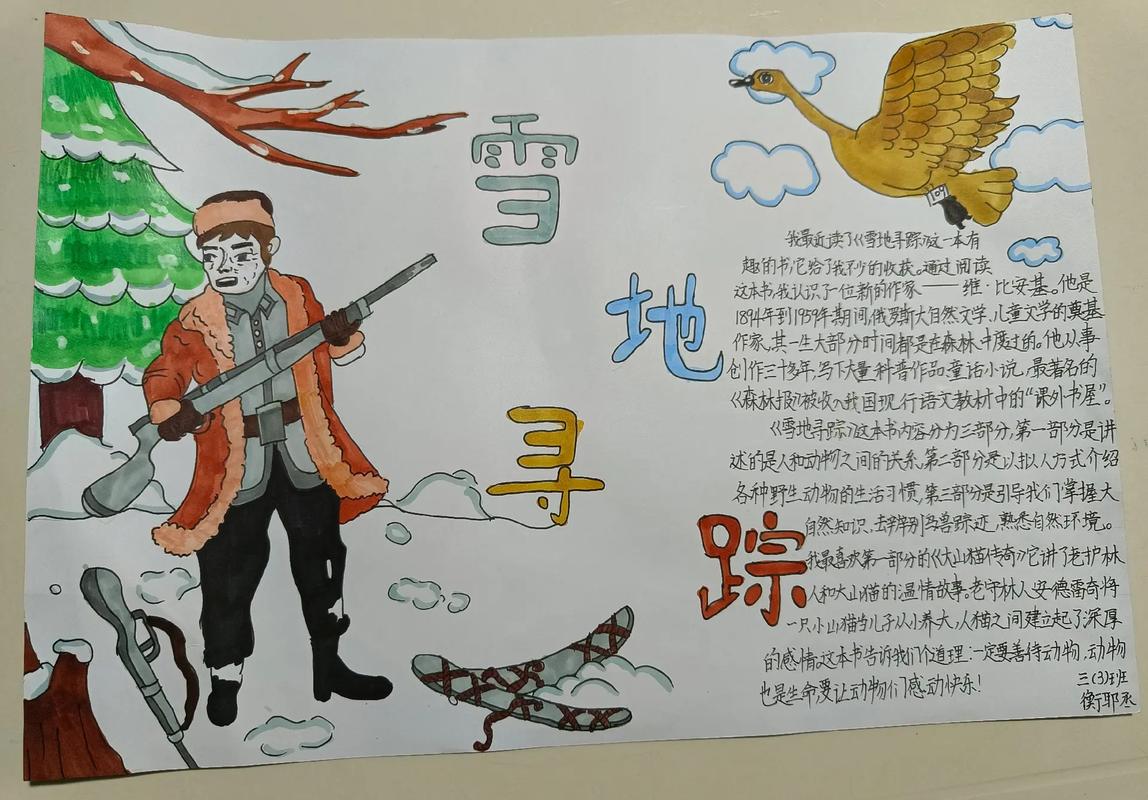 雪
地
寻
踪
我最近读了《雪地寻踪》这一本有
趣的书,它给了我不少的收获。通过阅读
这本书,我认识了一位新的作家——维·比安基。他是
1894年到1959年期间,俄罗斯大自然文学,儿童文学的奠基
作家,其一生大部分时间都是在森林中度过的。他从事
创作三十多年,写下大量科普作品,童话小说,最著名的
《森林报》被收入我国现行语文教材中的“课外书屋”。
《雪地寻踪》这本书内容分为三部分,第一部分是讲
述的是人和动物之间的关系,第二部分是以拟人方式介绍
各种野生动物的生活习惯,第三部分是引导我们掌握大
自然知识,去辨别鸟兽踪迹,熟悉自然环境。
我最喜欢第一部分的《大山猫传奇》它讲了老护林
人和大山猫的温情故事。老守林人安德雷奇将
一只小山猫当儿子从小养大,人猫之间建立起了深厚
的感情,这本书告诉我们个道理:一定要善待动物,动物
也是生命要让动物们感动快乐!
三(3)班
衡耶丞